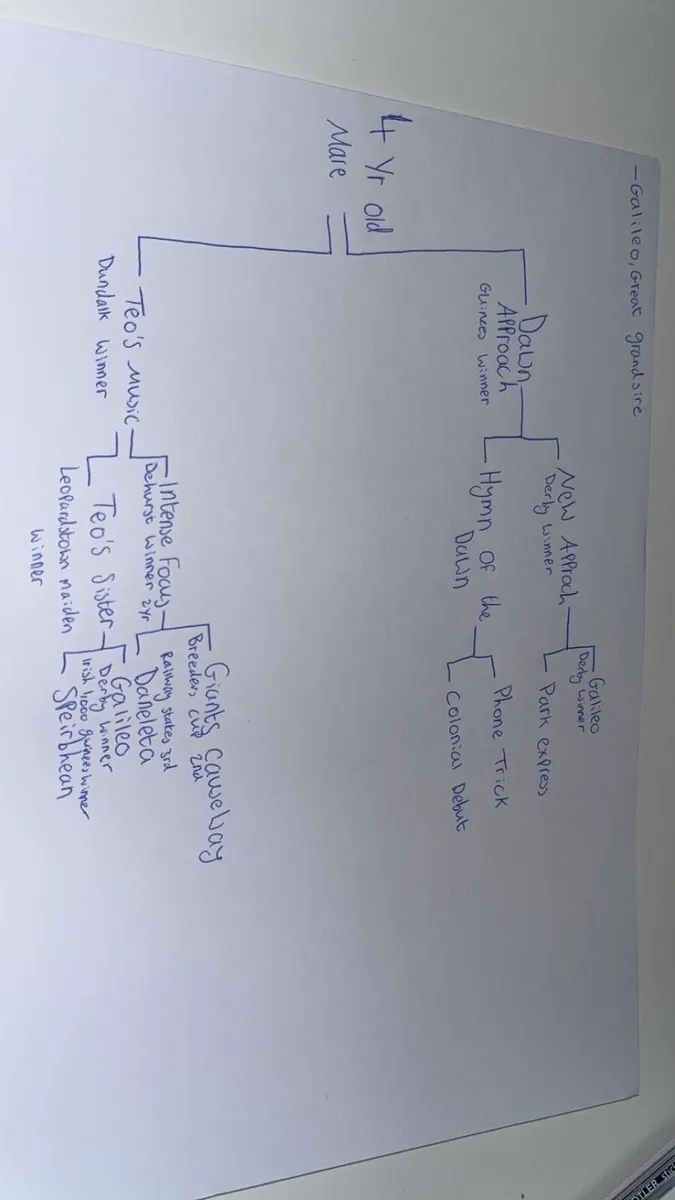 - Galileo, Great grandsire
4 Yr old
Mare
Dawn
Approach
Guinees winner
New Approach
Derby winner
Galileo
Derby winner
Park express
Hymn of the
Dawn
Phone Trick
Colonial Debut
Teo's Music
Dundalk winner
Intense Focus
Dehurst winner 2yr
Giants Causeway
Breeders cup 2nd
Railway stakes 3rd
Daneleta
Teo's Sister
Leopardstown maiden
winner
Galileo
Derby winner
Irish 1,000 guinees winner
Speirbhean